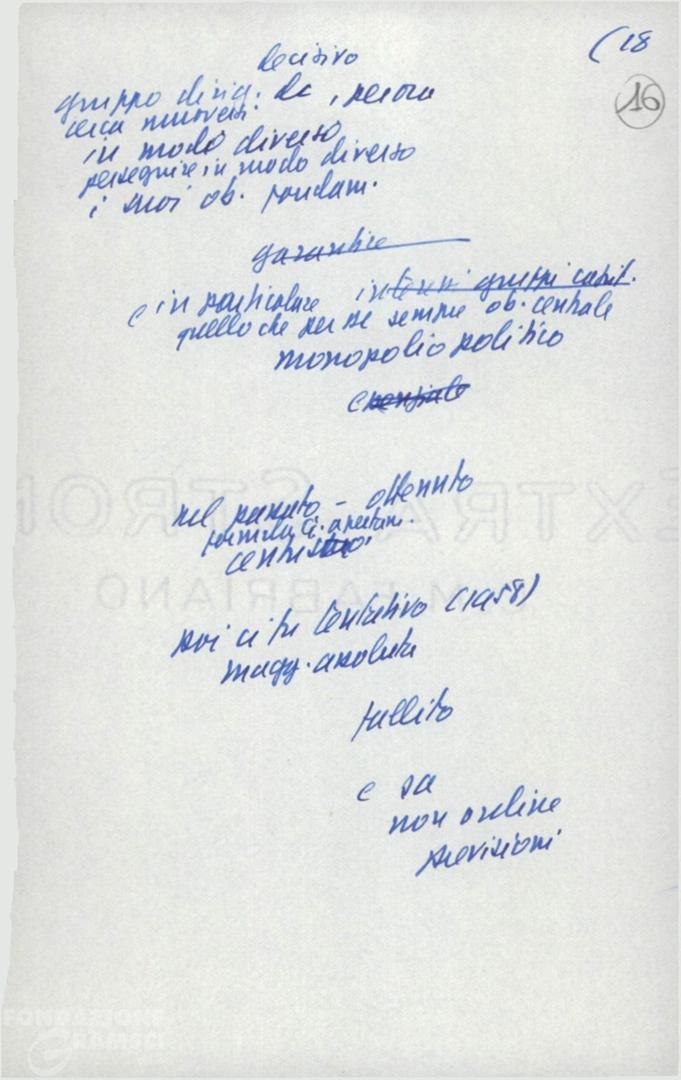 (18
16
decisivo
gruppo dirig. dc, perora
cerca muoversi
in modo diverso
perseguire in modo diverso
i suoi ob. fondam.
garantire
e in particolare interessi gruppi capit.
quello che per me sempre ob. centrale
monopolio politico
e
nel passato – ottenuto
formula
centrismo
poi ci fu tentativo (1958)
magg. assoluta
fallito
e sa
non ordine
previsioni
EXTRA STRONG
FABRIANO
FONDAZIONE
GRAMSCI